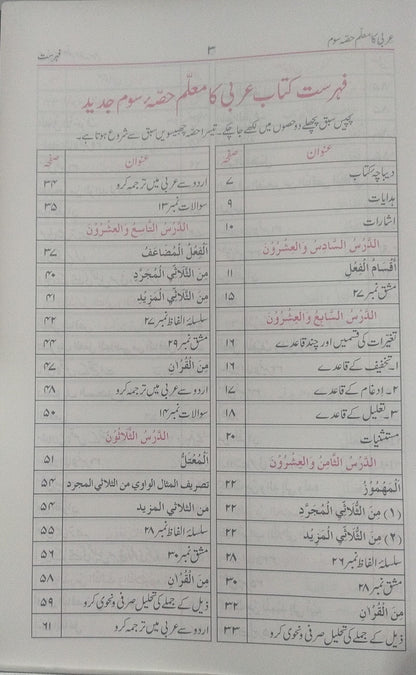 عربی کا معلم حصہ سوم ۳ فہرست
فہرست کتاب عربی کا معلّم حصّہ سوم جدید
پچیس سبق پچھلے دو حصوں میں لکھے جاچکے۔ تیسرا حصہ چھبیسویں سبق سے شروع ہوتا ہے۔
عنوان صفحہ
دیباچہ کتاب ۷
ہدایات ۹
اشارات ۱۰
الدَّرْسُ السَّادِسُ وَالْعِشْرُوْنَ
أَقْسَامُ الْفِعْلِ ۱۱
مشق نمبر ۲۷ ۱۵
الدَّرْسُ السَّابِعُ وَالْعِشْرُوْنَ
تغیّرات کی قسمیں اور چند قاعدے ۱۶
۱۔ تخفیف کے قاعدے ۱۶
۲۔ إدغام کے قاعدے ۱۷
۳۔ تعلیل کے قاعدے ۱۸
مستثنیات ۲۰
الدَّرْسُ الثَّامِنُ وَالْعِشْرُوْنَ
الْمَهْمُوْزُ ۲۲
(۱) مِنَ الثُّلَاثِي الْمُجَرَّدِ ۲۲
(۲) مِنَ الثُّلَاثِي الْمَزِيْدِ ۲۲
سلسلۂ الفاظ نمبر ۲۶ ۲۸
مشق نمبر ۲۸ ۳۰
مِنَ الْقُرْاٰنِ ۳۲
ذیل کے جملے کی تحلیل صرفی و نحوی کرو ۳۳
عنوان صفحہ
اردو سے عربی میں ترجمہ کرو ۳۴
سوالات نمبر ۱۳ ۳۵
الدَّرْسُ التَّاسِعُ وَالْعِشْرُوْنَ
اَلْفِعْلُ الْمُضَاعَفُ ۳۷
مِنَ الثُّلَاثِي الْمُجَرَّدِ ۴۰
مِنَ الثُّلَاثِي الْمَزِيْدِ ۴۱
سلسلۂ الفاظ نمبر ۲۷ ۴۲
مشق نمبر ۲۹ ۴۴
مِنَ الْقُرْاٰنِ ۴۷
اردو سے عربی میں ترجمہ کرو ۴۸
سوالات نمبر ۱۴ ۵۰
الدَّرْسُ الثَّلَاثُوْنَ
اَلْمُعْتَلُّ ۵۱
تصریف المثال الواوي من الثلاثي المجرد ۵۴
من الثلاثي المزيد ۵۴
سلسلۂ الفاظ نمبر ۲۸ ۵۵
مشق نمبر ۳۰ ۵۶
مِنَ الْقُرْاٰنِ ۵۸
ذیل کے جملے کی تحلیل صرفی و نحوی کرو ۵۹
اردو سے عربی میں ترجمہ کرو ۶۱